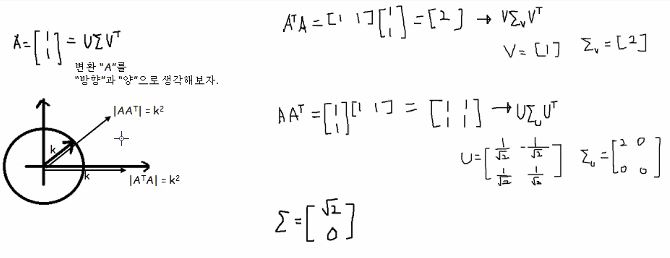 A = [1; 1] = UΣVᵀ
변환 "A"를
"방향"과 "양"으로 생각해보자.
|AAᵀ| = k²
k
k
|AᵀA| = k²
AᵀA = [1 1][1; 1] = [2] → VΣᵥVᵀ
V = [1] Σᵥ = [2]
AAᵀ = [1; 1][1 1] = [1 1; 1 1] → UΣᵤUᵀ
U = [1/√2 -1/√2; 1/√2 1/√2] Σᵤ = [2 0; 0 0]
Σ = [√2; 0]